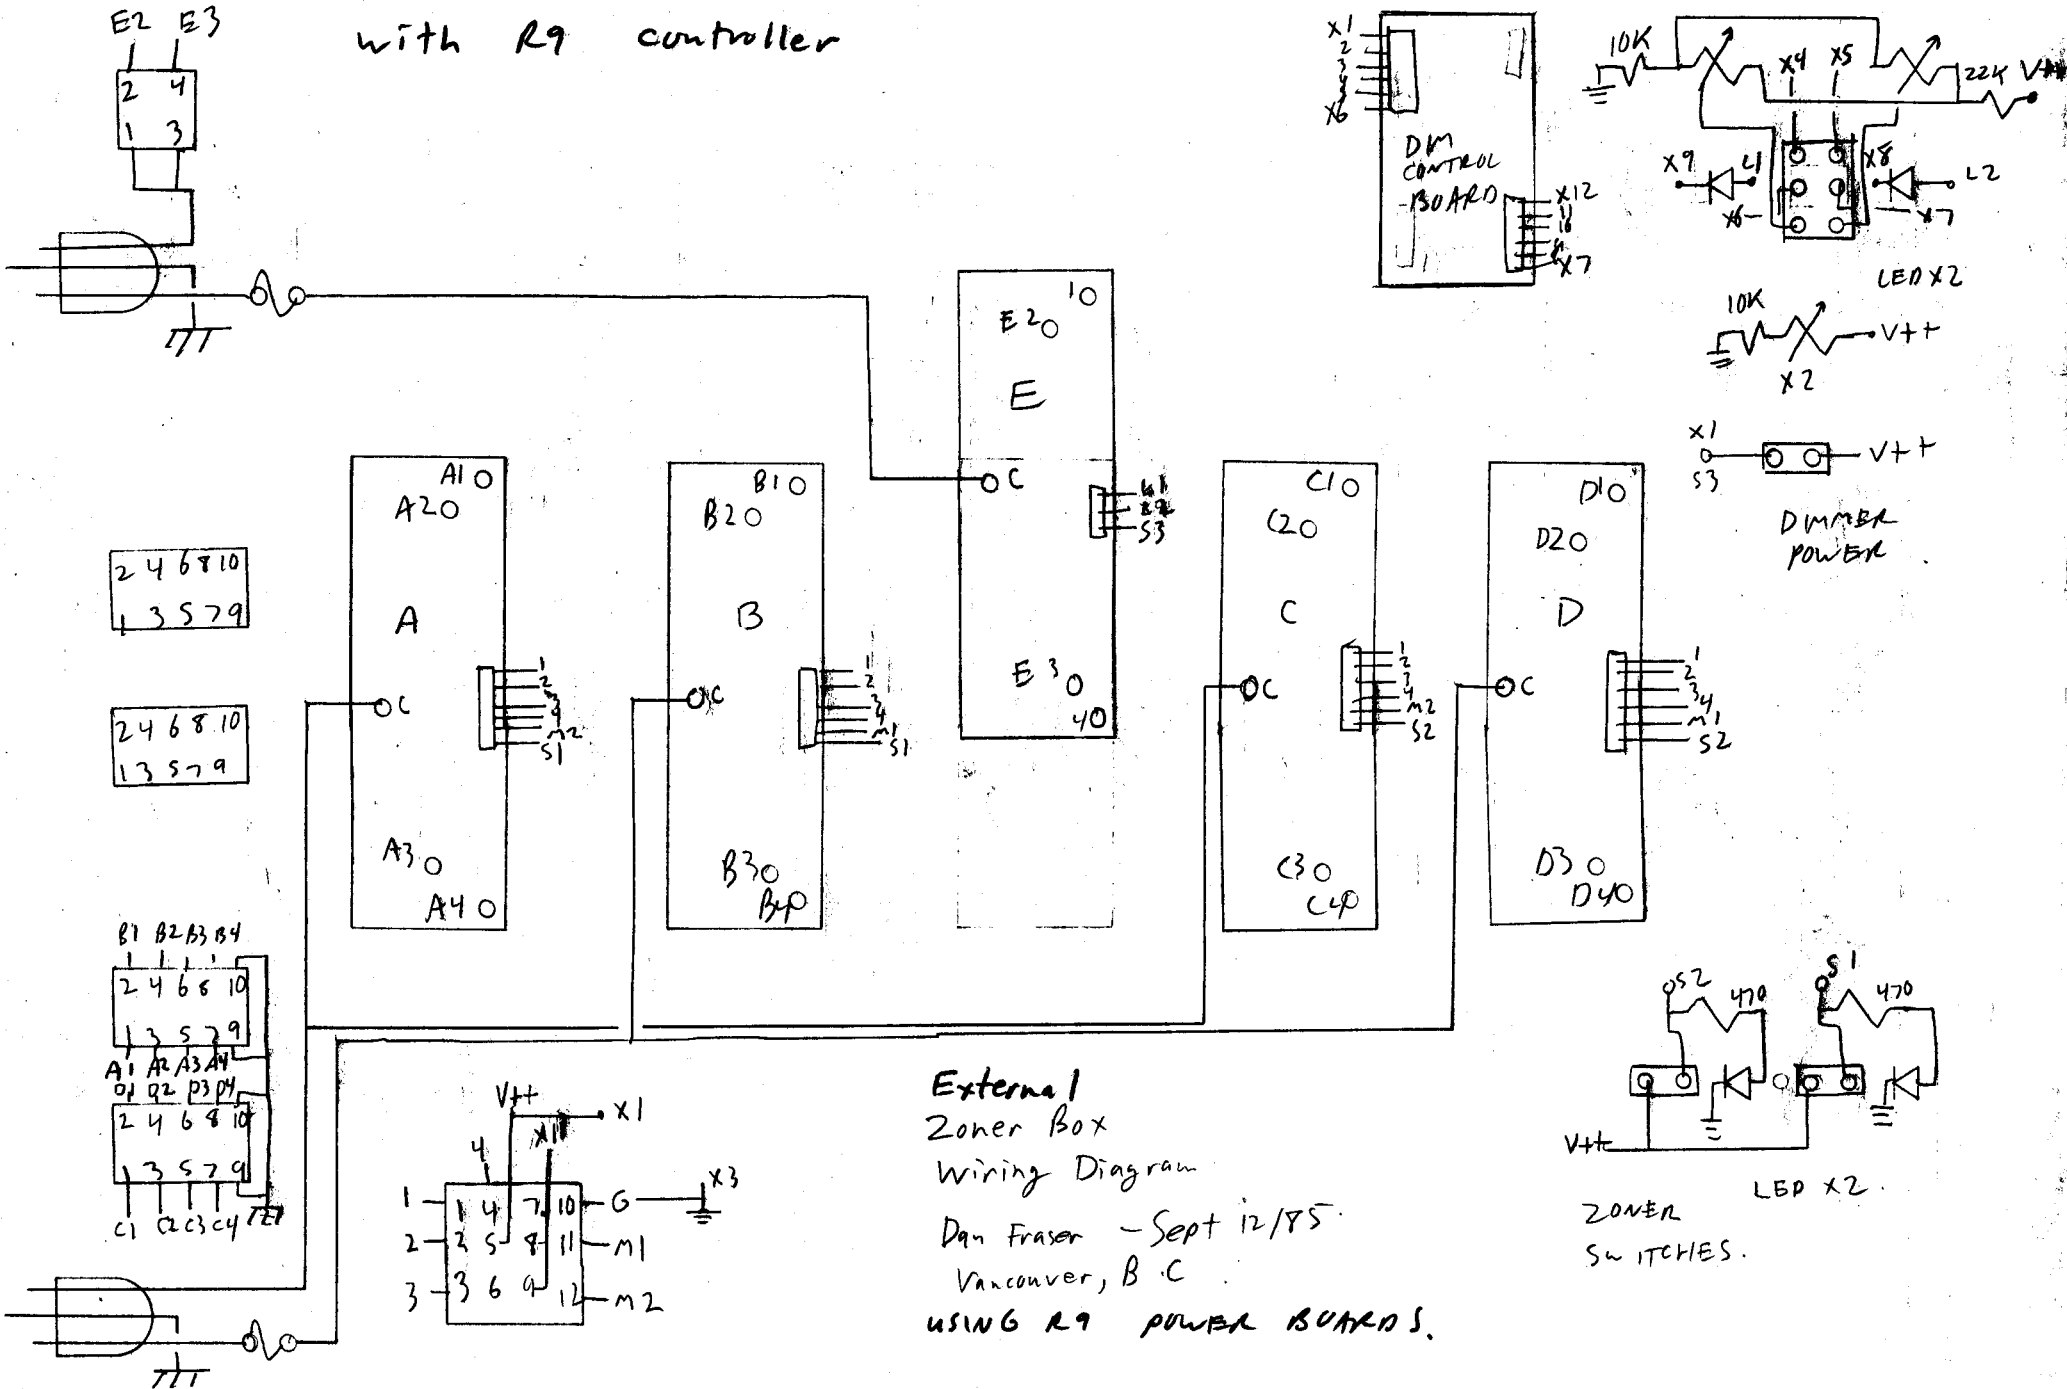 E2 E3
with R9 controller
2 4
1 3
X1
2
3
4
X6
DM
CONTROL
BOARD
X12
11
10
X7
10K
X4 X5
22K V++
X9 L1
X8 L2
X6
X7
LED X2
10K
V++
X2
X1
S3
V++
DIMMER
POWER
1
E2
E
C
S3
E3
4
A1
A2
A
C
1
2
3
4
M2
S1
A3
A4
B1
B2
B
C
1
2
3
4
M1
S1
B3
B4
C1
C2
C
C
1
2
3
4
M2
S2
C3
C4
D1
D2
D
C
1
2
3
4
M1
S2
D3
D4
2 4 6 8 10
1 3 5 7 9
2 4 6 8 10
1 3 5 7 9
B1 B2 B3 B4
2 4 6 8 10
1 3 5 7 9
A1 A2 A3 A4
D1 D2 D3 D4
2 4 6 8 10
1 3 5 7 9
C1 C2 C3 C4
V++ X1
4 X11
1 1 4 7 10 G X3
2 2 5 8 11 M1
3 3 6 9 12 M2
External
Zoner Box
Wiring Diagram
Dan Fraser - Sept 12/85
Vancouver, B.C.
USING R9 POWER BOARDS.
S2 470
S1 470
V++
LED X2.
ZONER
SWITCHES.